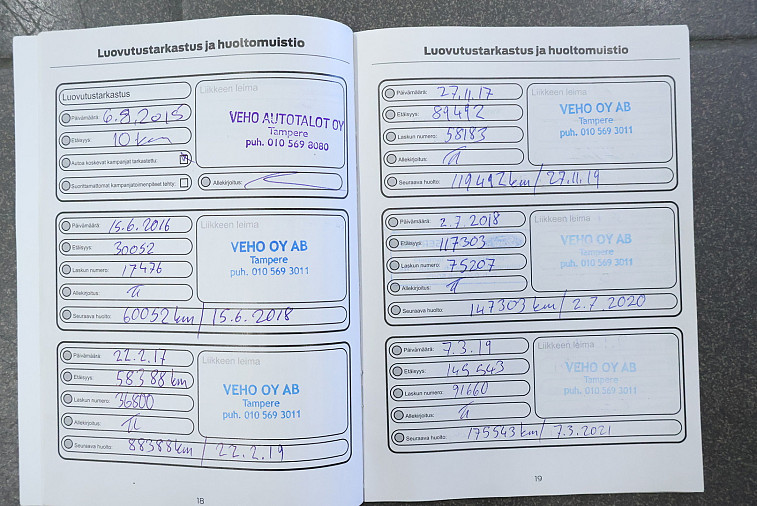 Luovutustarkastus ja huoltomuistio
Luovutustarkastus
Päivämäärä: 6.8.2015
Etäisyys: 10 km
Autoa koskevat kampanjat tarkastettu:
Suorittamattomat kampanjatoimenpiteet tehty:
Liikkeen leima
VEHO AUTOTALOT OY
Tampere
puh. 010 569 8080
Allekirjoitus:
Päivämäärä: 15.6.2016
Etäisyys: 30052
Laskun numero: 17476
Allekirjoitus:
Seuraava huolto: 60052 km / 15.6.2018
Liikkeen leima
VEHO OY AB
Tampere
puh. 010 569 3011
Päivämäärä: 22.2.17
Etäisyys: 58388 km
Laskun numero: 36800
Allekirjoitus:
Seuraava huolto: 88388 km / 22.2.19
Liikkeen leima
VEHO OY AB
Tampere
puh. 010 569 3011
18
Luovutustarkastus ja huoltomuistio
Päivämäärä: 27.11.17
Etäisyys: 89492
Laskun numero: 58183
Allekirjoitus:
Seuraava huolto: 119492 km / 27.11.19
Liikkeen leima
VEHO OY AB
Tampere
puh. 010 569 3011
Päivämäärä: 2.7.2018
Etäisyys: 117303
Laskun numero: 75207
Allekirjoitus:
Seuraava huolto: 147303 km / 2.7.2020
Liikkeen leima
VEHO OY AB
Tampere
puh. 010 569 3011
Päivämäärä: 7.3.19
Etäisyys: 145543
Laskun numero: 91660
Allekirjoitus:
Seuraava huolto: 175543 km / 7.3.2021
Liikkeen leima
VEHO OY AB
Tampere
puh. 010 569 3011
19